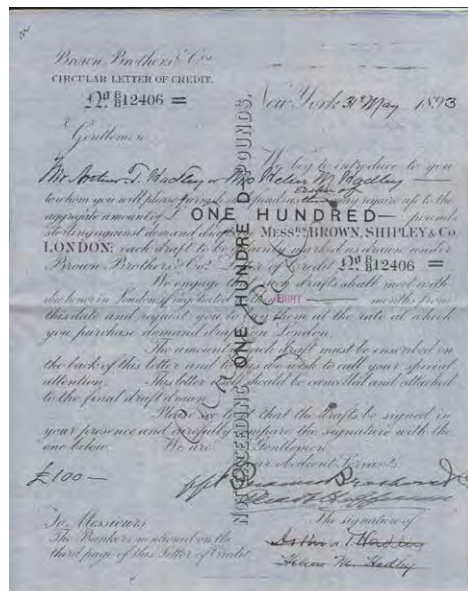 Brown Brothers & Co.
CIRCULAR LETTER OF CREDIT.
No. B/B 12406 =
New York 31st May 1893
Gentlemen
We beg to introduce to you
Mr Arthur T. Hadley or Mrs Helen M. Hadley
to whom you will please furnish such funds as may require up to the
aggregate amount of £ ONE HUNDRED— pounds
sterling against demand drafts MESSRS BROWN, SHIPLEY & CO.
LONDON: each draft to be marked as drawn under
Brown Brothers & Co. Letter of Credit No. B/B 12406 =
We engage that such drafts shall meet with
due honor in London if negotiated within EIGHT months from
this date and request you to buy them at the rate at which
you purchase demand drafts on London.
The amount of each draft must be inscribed on
the back of this letter and to this we wish to call your special
attention. This letter should be cancelled and attached
to the final draft drawn.
Please see that the drafts be signed in
your presence and carefully compare the signature with the
one below. We are Gentlemen
Your obedient Servants
£100—
NOT EXCEEDING ONE HUNDRED POUNDS.
To Messieurs
The Bankers mentioned on the
third page of this Letter of Credit.
The signature of
Arthur T. Hadley
Helen M. Hadley